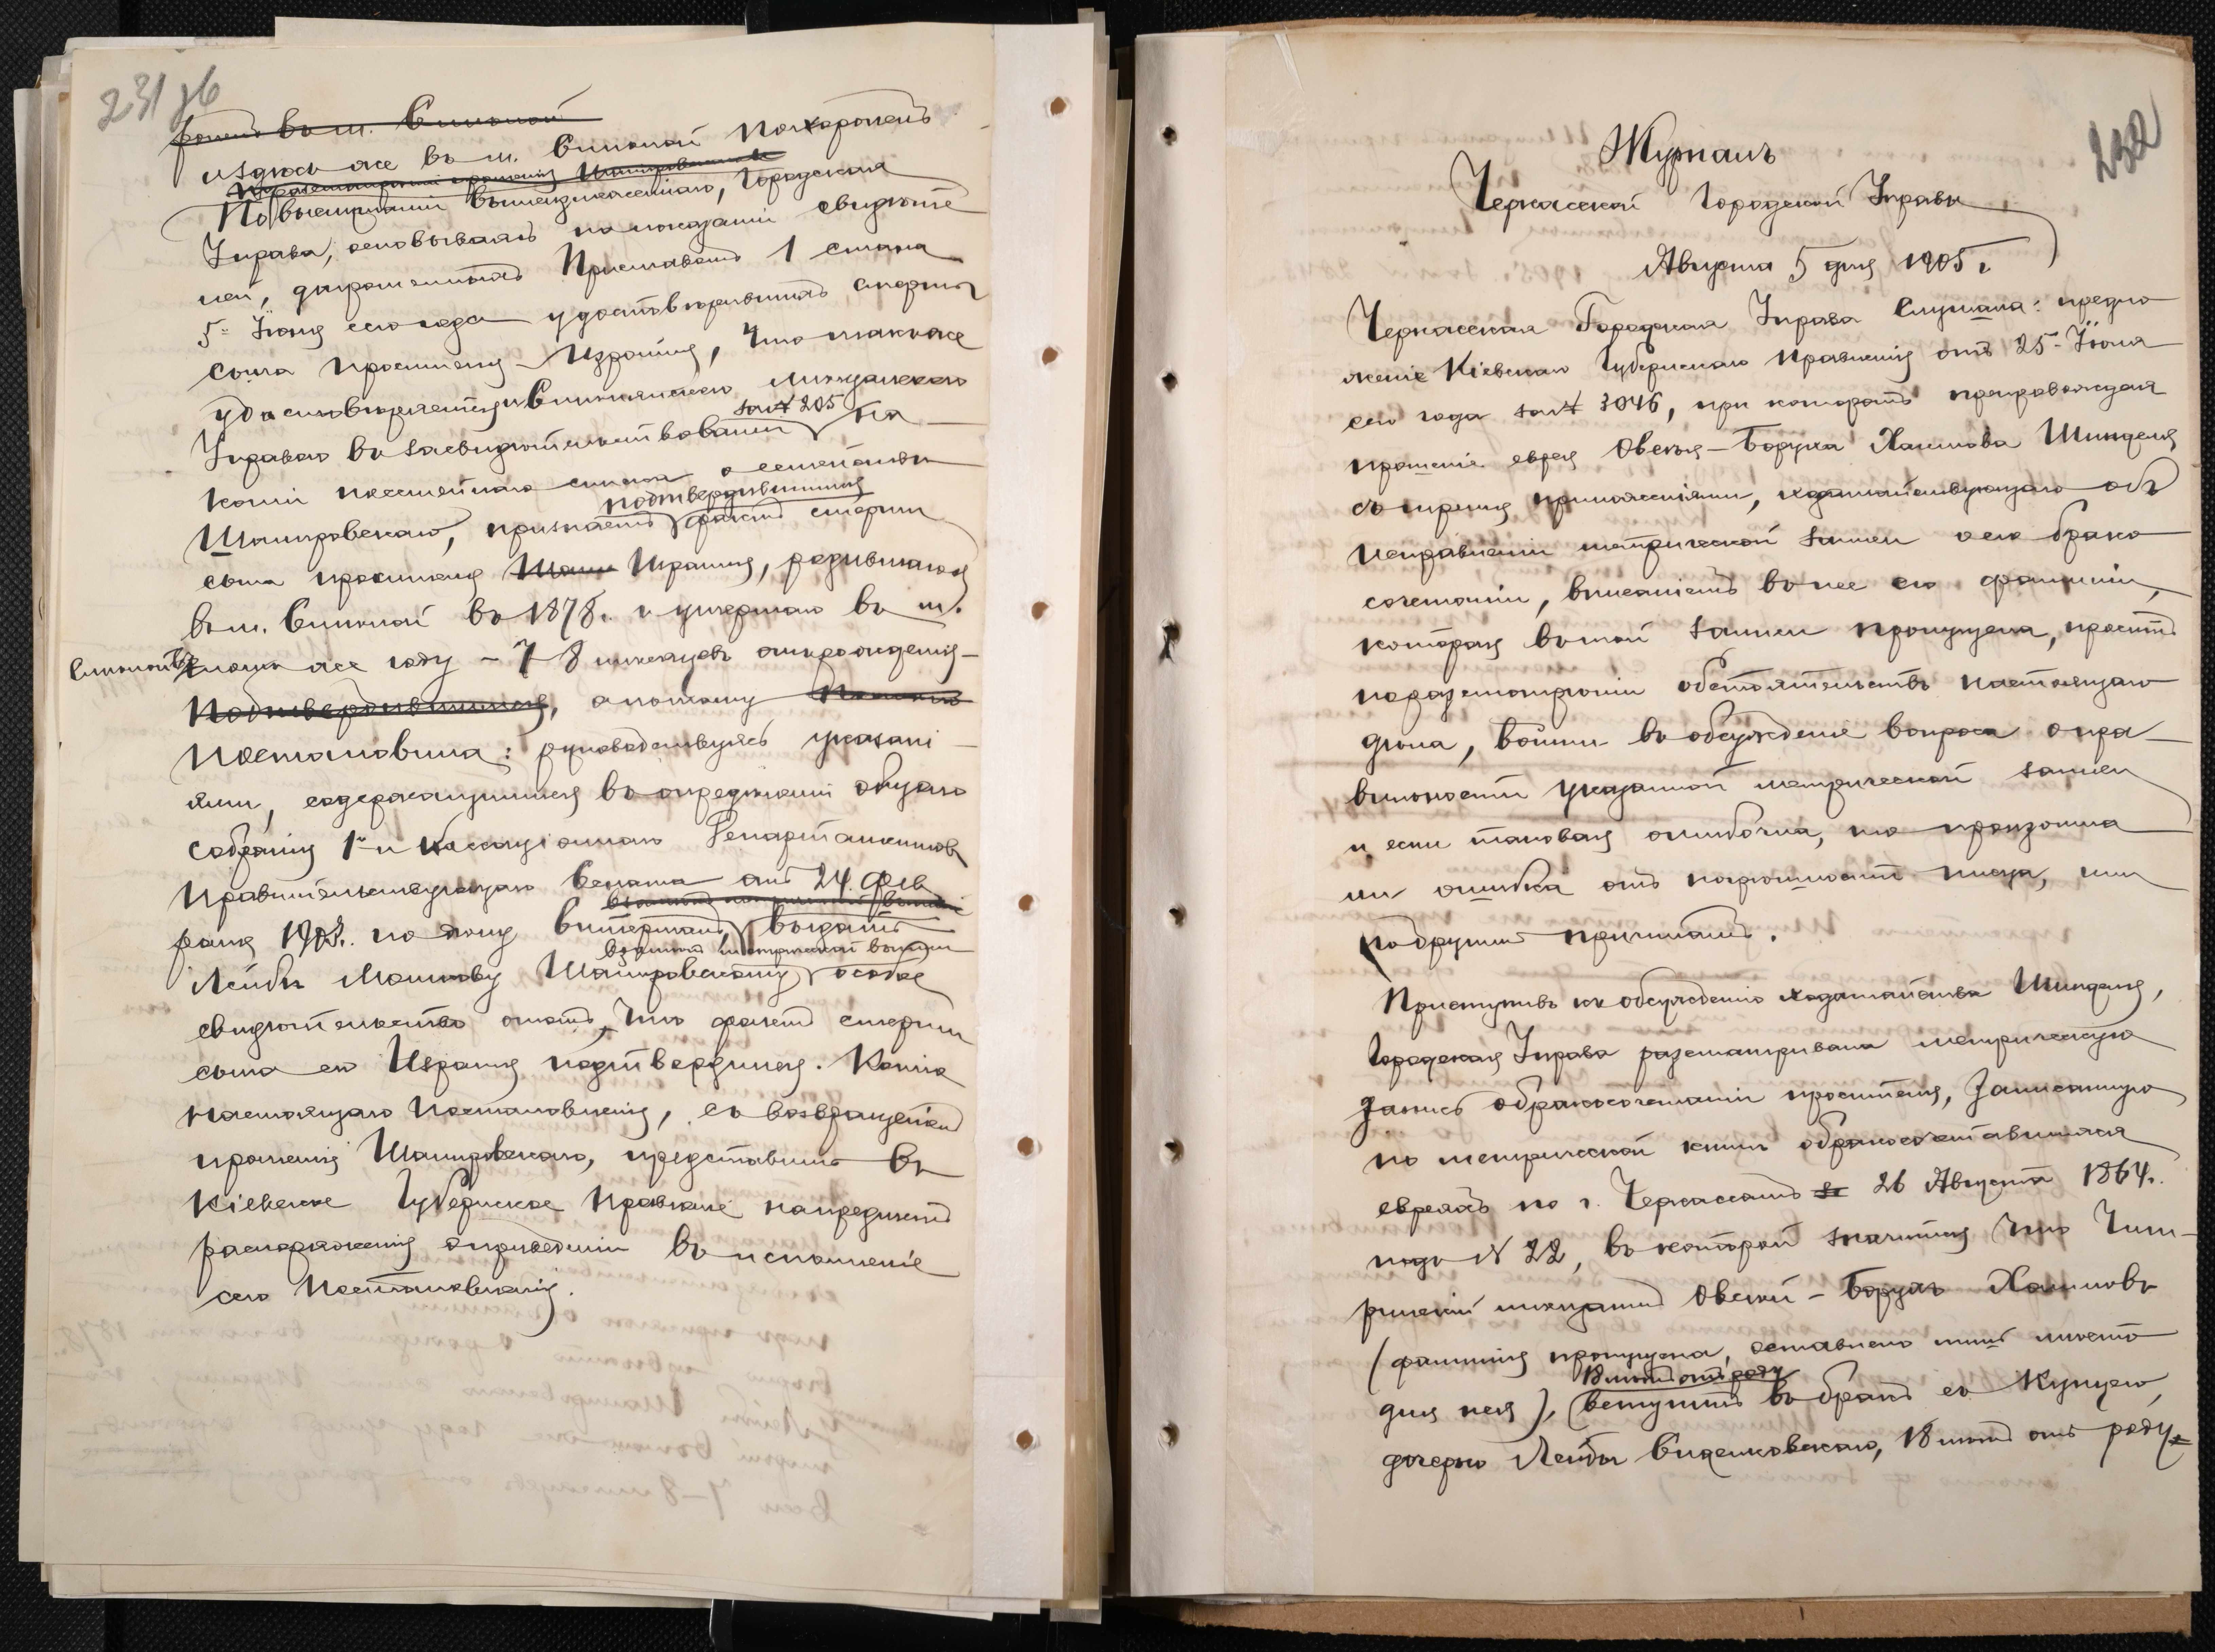 231 об
въ м. Смѣлой
и здѣсь же въ м. Смѣлой похороненъ
По выслушаніи вышеизложеннаго, Городская
Управа, основываясь на показаніи свидѣте
лей, допрошенныхъ Приставомъ 1 стана
5го Іюня сего года удостовѣрившихъ смерть
сына просителя Израиля, что также
удостовѣряется и Смѣлянскою Мѣщанскою
Управою въ засвидѣтельствованіи за № 205 на
копіи посемейнаго списка о семействѣ
Шаировскаго, признаетъ подтвердившимся фактъ смерти
сына просителя Израиля, родившагося
въ м. Смѣлой въ 1878 г. и умершаго въ м.
Смѣлой въ томъ же году – 7-8 мѣсяцевъ отъ рожденія –
подтвердившимся, а потому
Постановила: руководствуясь указані
ями, содержащимися въ опредѣленіи общаго
собранія 1го и Кассаціоннаго Департаментовъ
Правительствующаго Сената отъ 24 фев
раля 1903 г. по дѣлу выдать
Лейбѣ Мошкову Шаировскому взамѣнъ метрической выписи особое
свидѣтельство о томъ, что фактъ смерти
сына его Израиля подтвердился. Копію
настоящаго постановленія, съ возвращеніемъ
прошенія Шаировскаго, представить въ
Кіевское Губернское Правленіе на предметъ
распоряженія о приведеніи въ исполненіе
сего постановленія.
232
Журналъ
Черкасской Городской Управы
Августа 5 дня 1905 г.
Черкасская Городская Управа Слушала: предло
женіе Кіевскаго Губернскаго Правленія отъ 25го Іюля
сего года за № 3046, при которомъ препровождая
прошеніе еврея Овсея-Боруха Хаимова Шинделя
съ тремя приложеніями, ходатайствующаго объ
исправленіи метрической записи о его брако
сочетаніи, вписаніемъ въ нее его фамиліи,
которая въ той записи пропущена, проситъ
по разсмотрѣніи обстоятельствъ настоящаго
дѣла, войти въ обсужденіе вопроса о пра
вильности указанной метрической записи
и, если таковая ошибочна, то произошла
ли ошибка отъ погрѣшности писца, или
по другимъ причинамъ.
Приступивъ къ обсужденію ходатайства Шинделя,
Городская Управа разсматривала метрическую
запись о бракосочетаніи просителя, записанную
по метрической книгѣ о бракосочетавшихся
евреяхъ по г. Черкассамъ за 26 Августа 1864 г.
подъ № 22, въ которой значится что Чиги
ринскій мѣщанинъ Овсей-Борухъ Хаимовъ
(фамилія пропущена, оставлено лишь мѣсто
для нея), 18 лѣтъ отъ роду вступилъ въ бракъ съ Купцею,
дочерью Лейбы Смелковскаго, 18 лѣтъ отъ роду